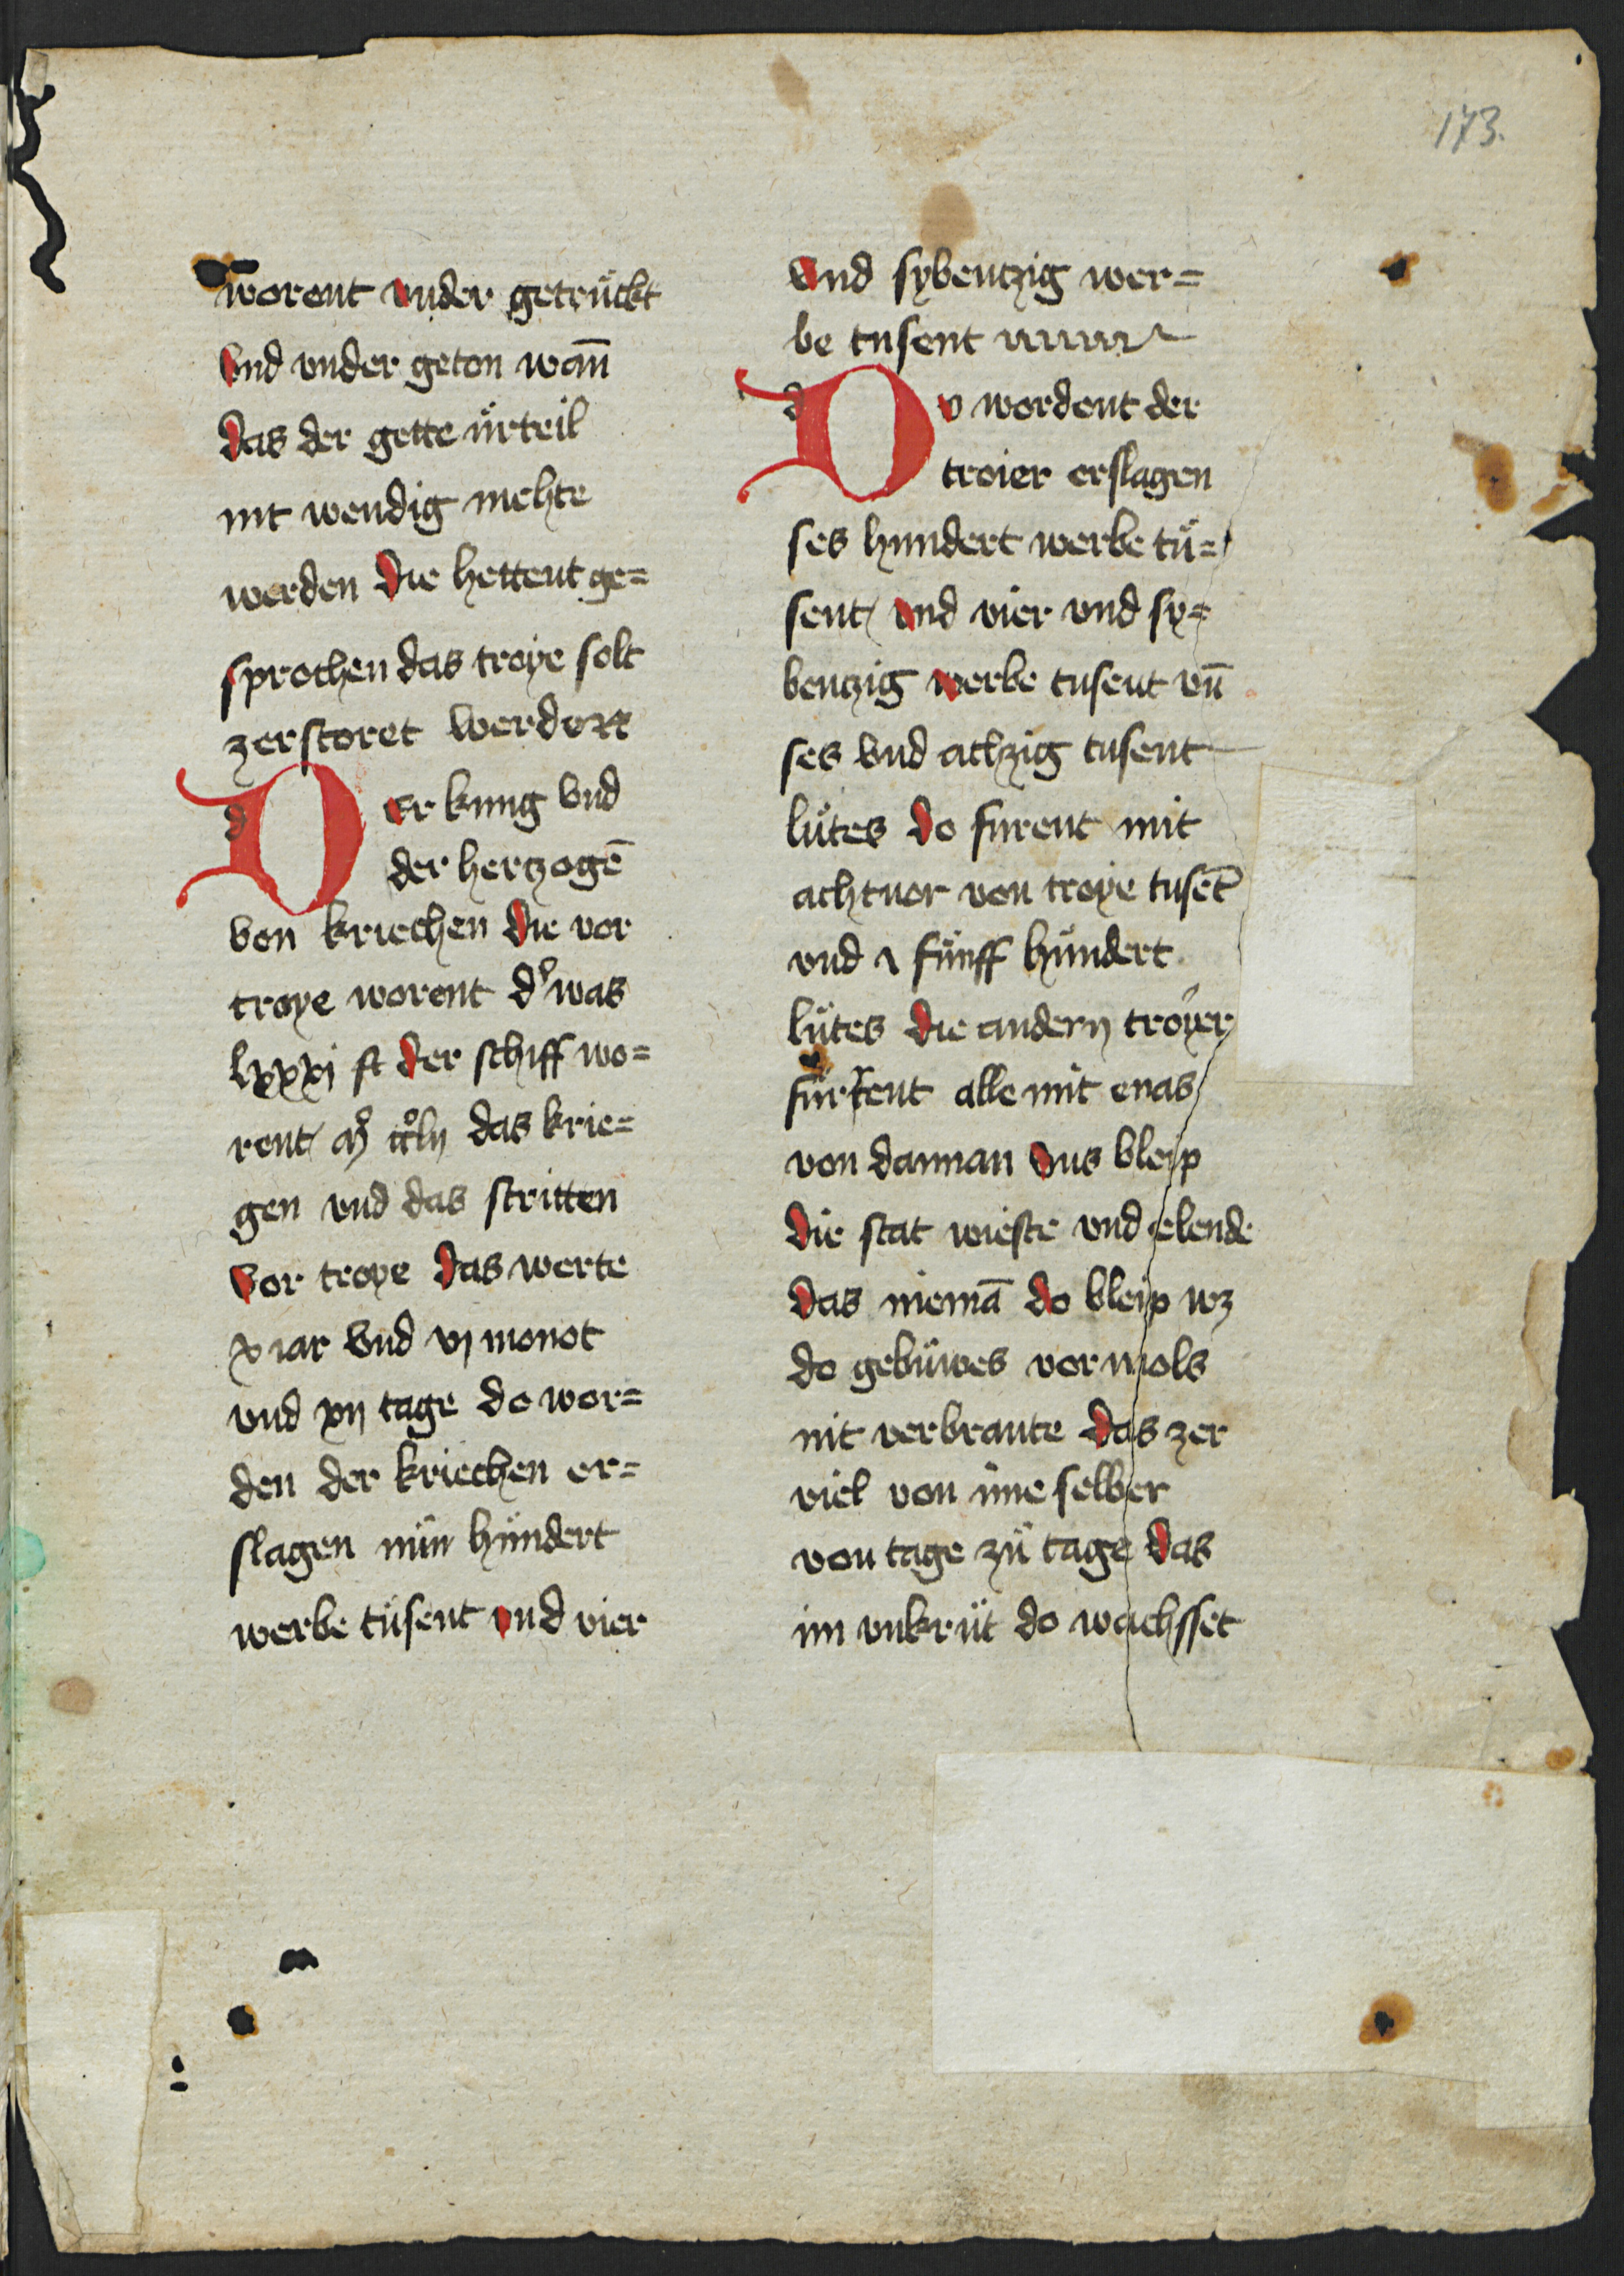 173.
worent vnder getrückt
Vnd vnder geton wan̄
das der gette ürteil
nit wendig mehte
werden Die hettent ge=
sprochen das troye solt
zerstoret werden
Der kunig Vnd
der hertzogē
von kriechen Die vor
troye worent dʼ was
lxxxj st der schiff wo=
rent das krie=
gen vnd das stritten
Vor troye das werte
x iar Vnd vj monot
vnd xij tage do wor=
den der kriechen er=
slagen nün hündert
werbe tüsent vnd vier
Vnd sybentzig wer=
be tusent
Do wordent der
troier erslagen
ses hundert werbe tü=
sent vnd vier vnd sy=
bentzig werbe tusent vn̄
ses Vnd achzig tusent
lütes Do furent mit
achtnor von troye tusēt
vnd fünff hündert
lütes Die andern tröyer
fürtent alle mit enas
von dannan Sus bleip
Die stat wieste vnd elende
Das niemā do bleip wz
do gebüwes vormols
nit verbrante Das zer
viel von ime selber
von tage zü tage Das
im vnkrüt do wachsset